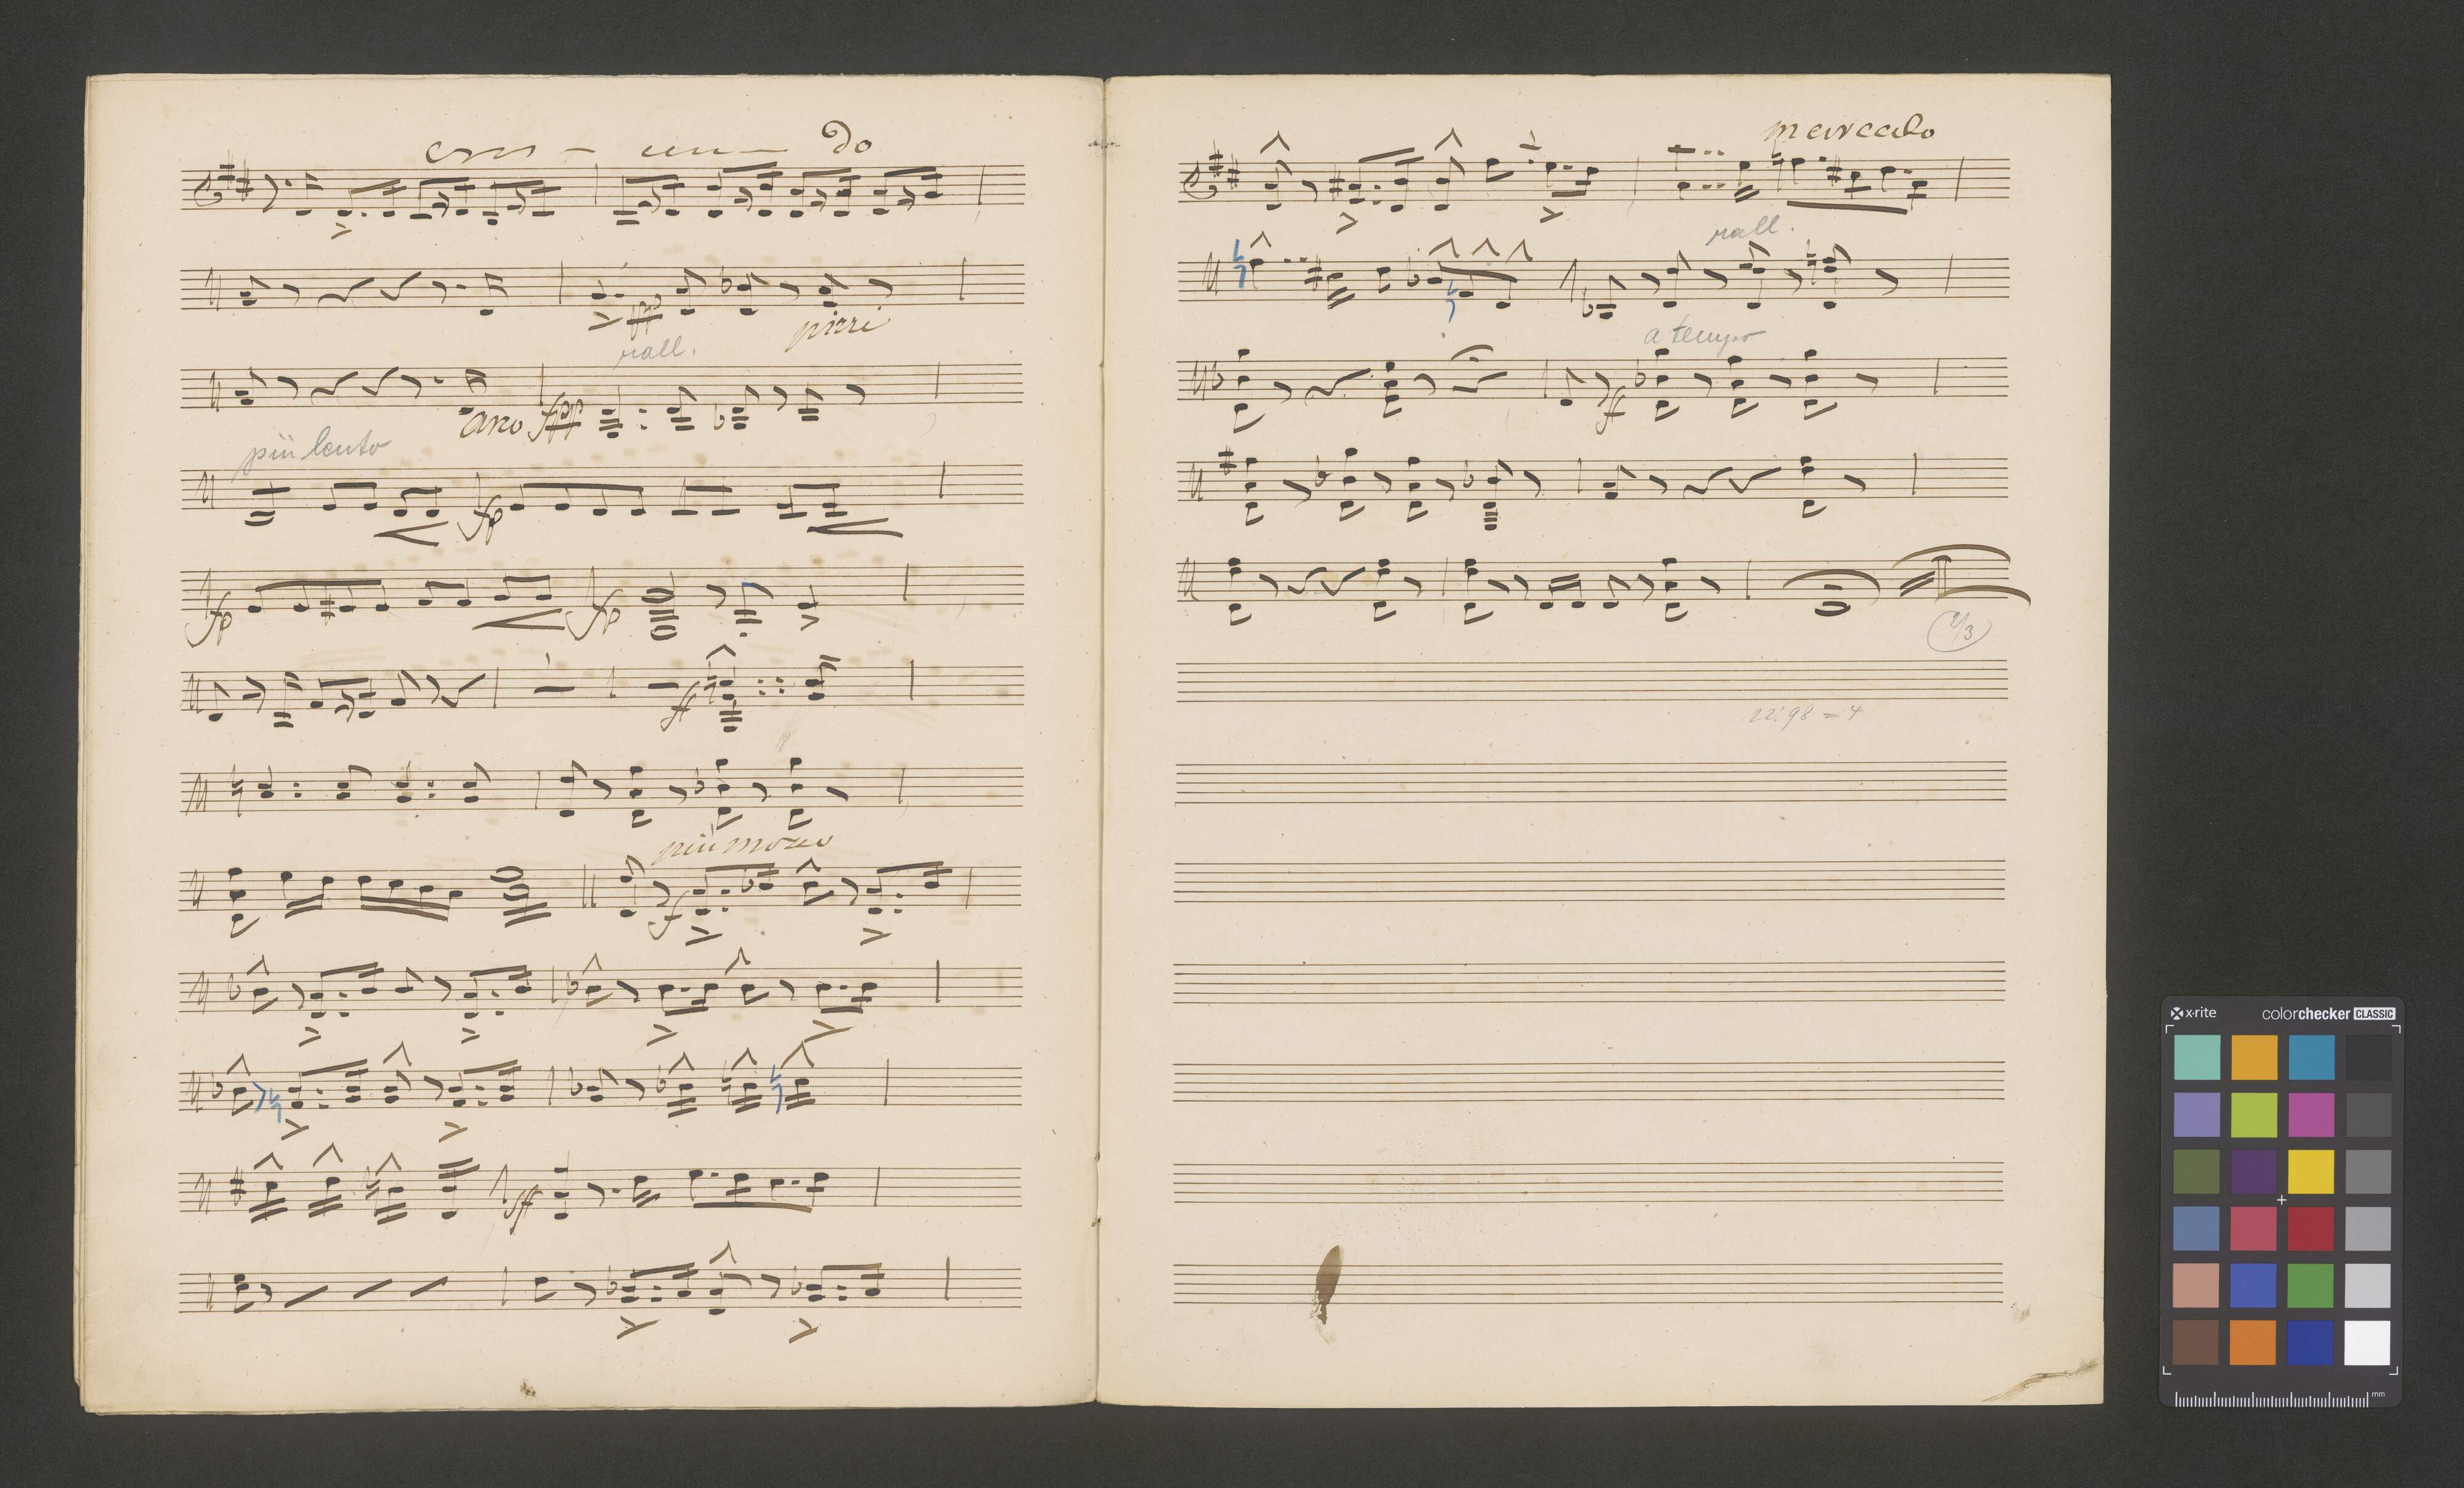 cres - cen - do
fpp
pizzi
rall.
arco fpp
più lento
fp
fp fp
ff
più mosso
f
ff
marcato
rall.
a tempo
ff
2/3
22:98 = 4
x-rite colorchecker CLASSIC
mm